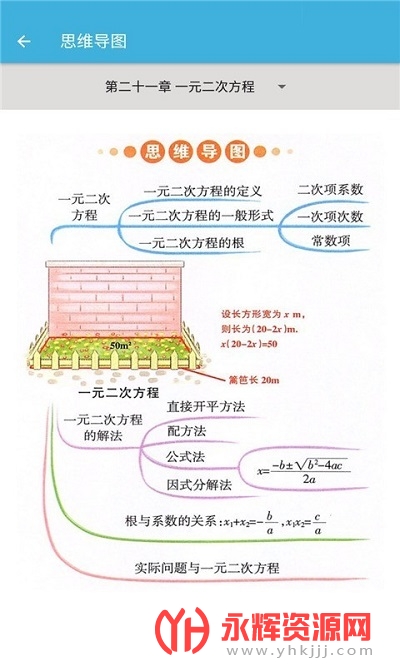 思维导图
第二十一章 一元二次方程
思维导图
一元二次
方程
一元二次方程的定义
一元二次方程的一般形式
一元二次方程的根
二次项系数
一次项次数
常数项
50m²
设长方形宽为 x m,
则长为(20-2x)m.
x(20-2x)=50
篱笆长 20m
一元二次方程
一元二次方程
的解法
直接开平方法
配方法
公式法
因式分解法
x=\frac{-b±\sqrt{b²-4ac}}{2a}
根与系数的关系:x₁+x₂=-\frac{b}{a},x₁x₂=\frac{c}{a}
实际问题与一元二次方程
YH 永辉资源网
www.yhkjjj.com